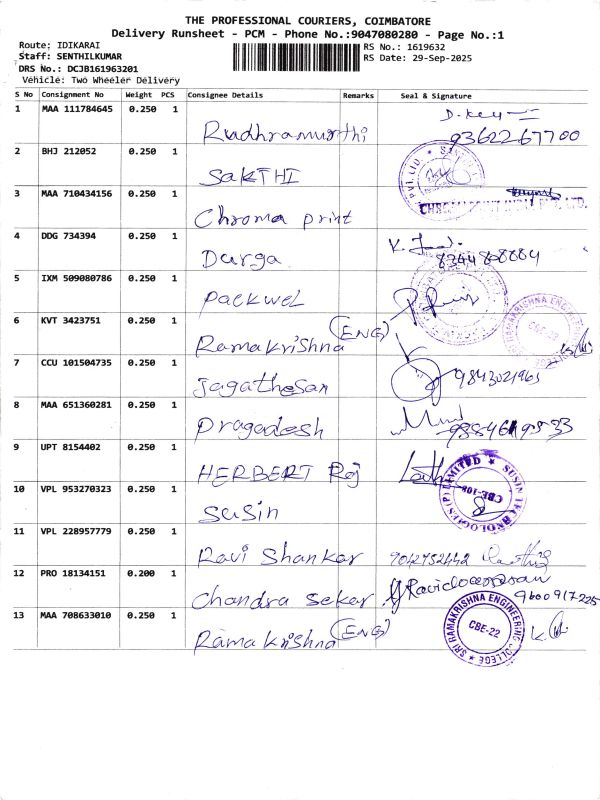 THE PROFESSIONAL COURIERS, COIMBATORE
Delivery Runsheet - PCM - Phone No.:9047080280 - Page No.:1
Route: IDIKARAI RS No.: 1619632
Staff: SENTHILKUMAR RS Date: 29-Sep-2025
DRS No.: DCJB161963201
Vehicle: Two Wheeler Delivery
S No Consignment No Weight PCS Consignee Details Remarks Seal & Signature
1 MAA 111784645 0.250 1 Rudhramurthi 9362267700
2 BHJ 212052 0.250 1 SAKTHI
3 MAA 710434156 0.250 1 Chroma print
4 DDG 734394 0.250 1 Durga
5 IXM 509080786 0.250 1 Packwel
6 KVT 3423751 0.250 1 Ramakrishna (ENG) RAMAKRISHNA ENGINEERING CBE-22
7 CCU 101504735 0.250 1 Jagathesan 9843021963
8 MAA 651360281 0.250 1 Pragadesh
9 UPT 8154402 0.250 1 HERBERT Raj
10 VPL 953270323 0.250 1 Susin SUSIN TECHNOLOGIES (P) LIMITED CBE-108
11 VPL 228957779 0.250 1 Ravi Shankar 9042752442
12 PRO 18134151 0.200 1 Chandra Seker 9600917225
13 MAA 708633010 0.250 1 Rama krishna (ENG) SRI RAMAKRISHNA ENGINEERING COLLEGE CBE-22